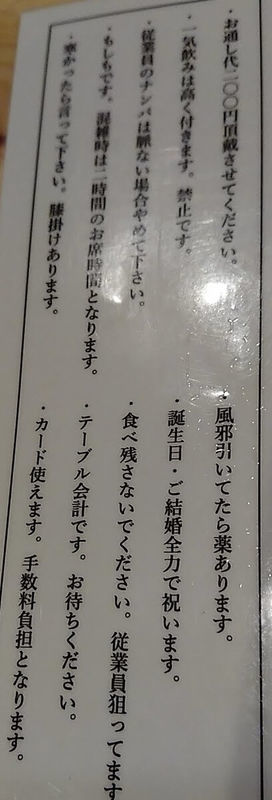 ・お通し代二〇〇円頂戴させてください。
・一気飲みは高く付きます。禁止です。
・従業員のナンパは脈ない場合やめて下さい。
・もしもです。混雑時は二時間のお席時間となります。
・寒かったら言って下さい。膝掛けあります。
・風邪引いてたら薬あります。
・誕生日・ご結婚全力で祝います。
・食べ残さないでください。従業員狙ってます
・テーブル会計です。お待ちください。
・カード使えます。手数料負担となります。